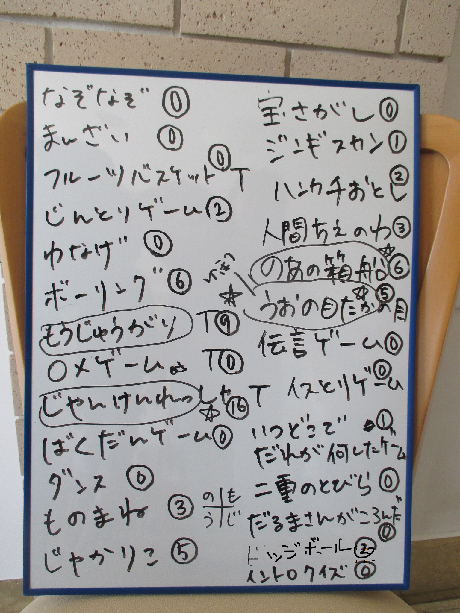 なぞなぞ ⓪
まんざい ⓪
フルーツバスケット ⓪ T
じんとりゲーム ②
わなげ ⓪
ボーリング ⑥
もうじゅうがり T ⑨
〇×ゲーム T ⓪
じゃんけんれっしゃ ⑯ T
ばくだんゲーム ⓪
ダンス ⓪
ものまね ③
じゃかりこ ⑤
のも
うじ
宝さがし ⓪
ジンギスカン ①
ハンカチおとし ②
人間ちえのわ ③
のあの箱船 ☆ ⑥
うおの目たかの目 ☆ ⑤
伝言ゲーム ⓪
イスとりゲーム ⓪
いつどこで ①
だれが何したゲーム
二重のとびら ⓪
だるまさんがころんだ ⓪
ドッジボール ②
イントロクイズ ⓪